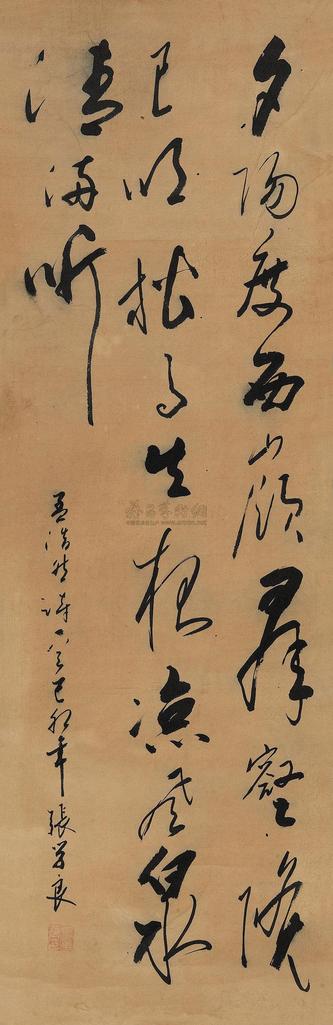 夕陽度西嶺群壑倏
已暝松月生夜凉風泉
清満听
孟浩然詩 己卯年 張学良